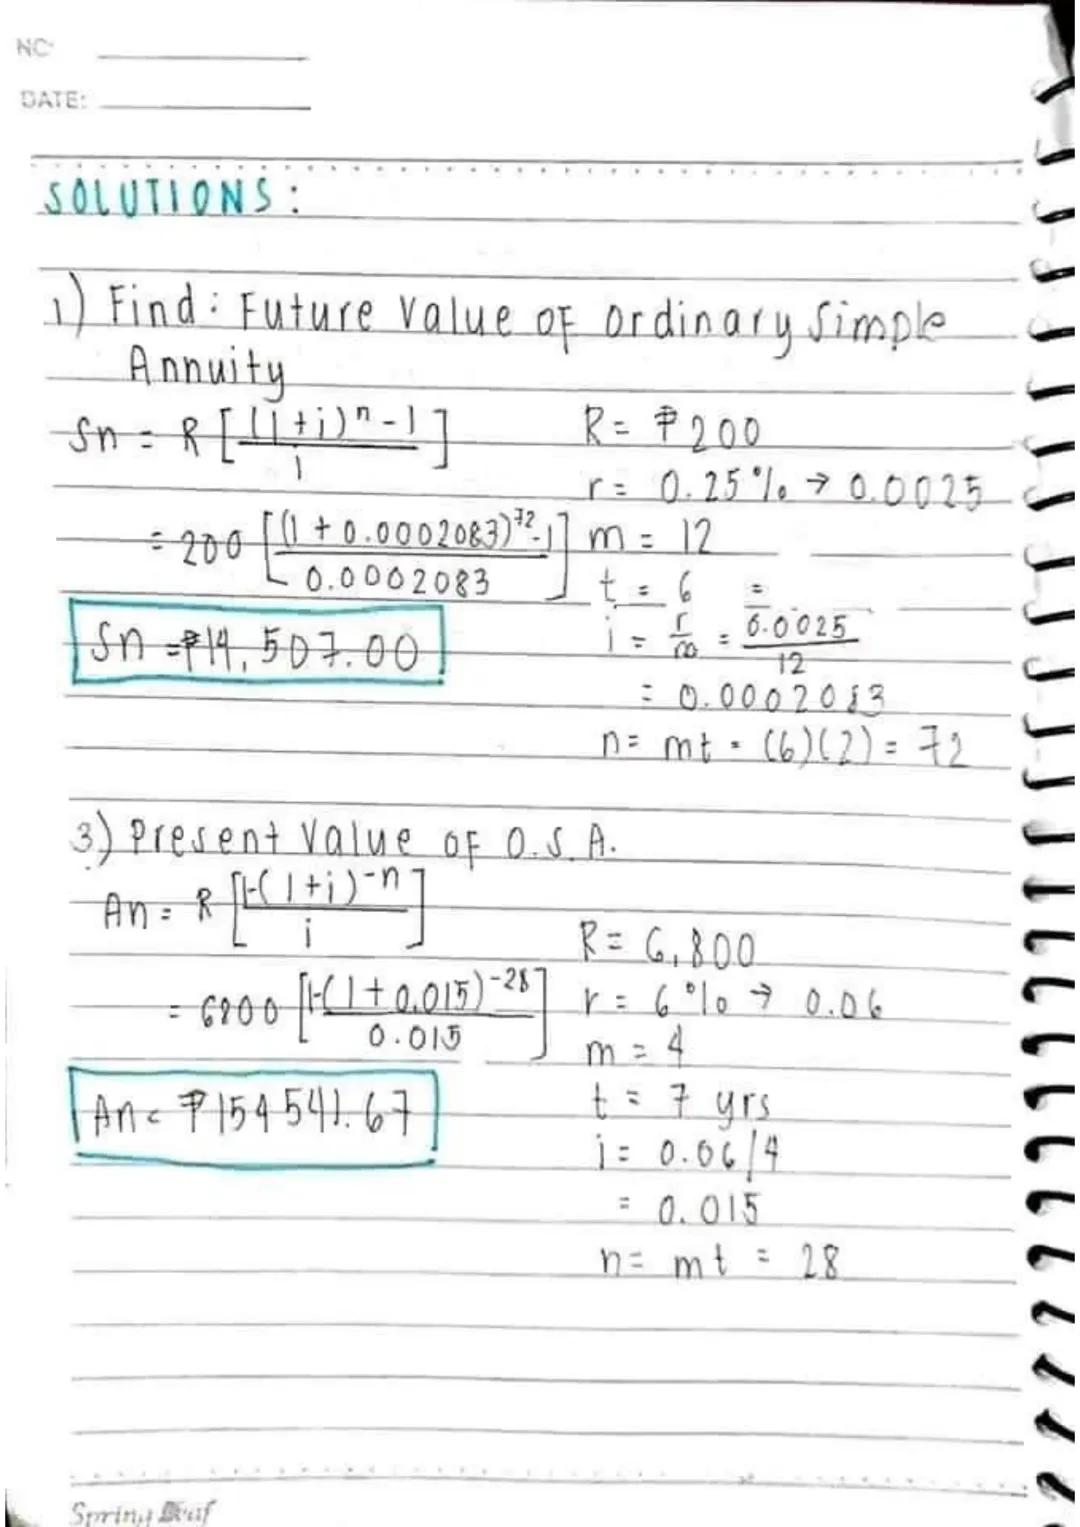 NO:
DATE:
SOLUTIONS:
1) Find: Future Value of Ordinary Simple
Annuity
Sn = R [((1+i)^n -1)/i]
R = ₱200
r = 0.25% → 0.0025
= 200 [((1 + 0.0002083)^72 -1)/0.0002083]
m = 12
t = 6
i = r/m = 0.0025/12
Sn = ₱14,507.00
= 0.0002083
n = mt = (6)(2) = 72
3) Present Value of O.S.A.
An = R [(1-(1+i)^-n)/i]
R = 6,800
= 6800 [(1-(1+0.015)^-28)/0.015]
r = 6% → 0.06
m = 4
An = ₱154541.67
t = 7 yrs
i = 0.06/4
= 0.015
n = mt = 28
Spring Leaf